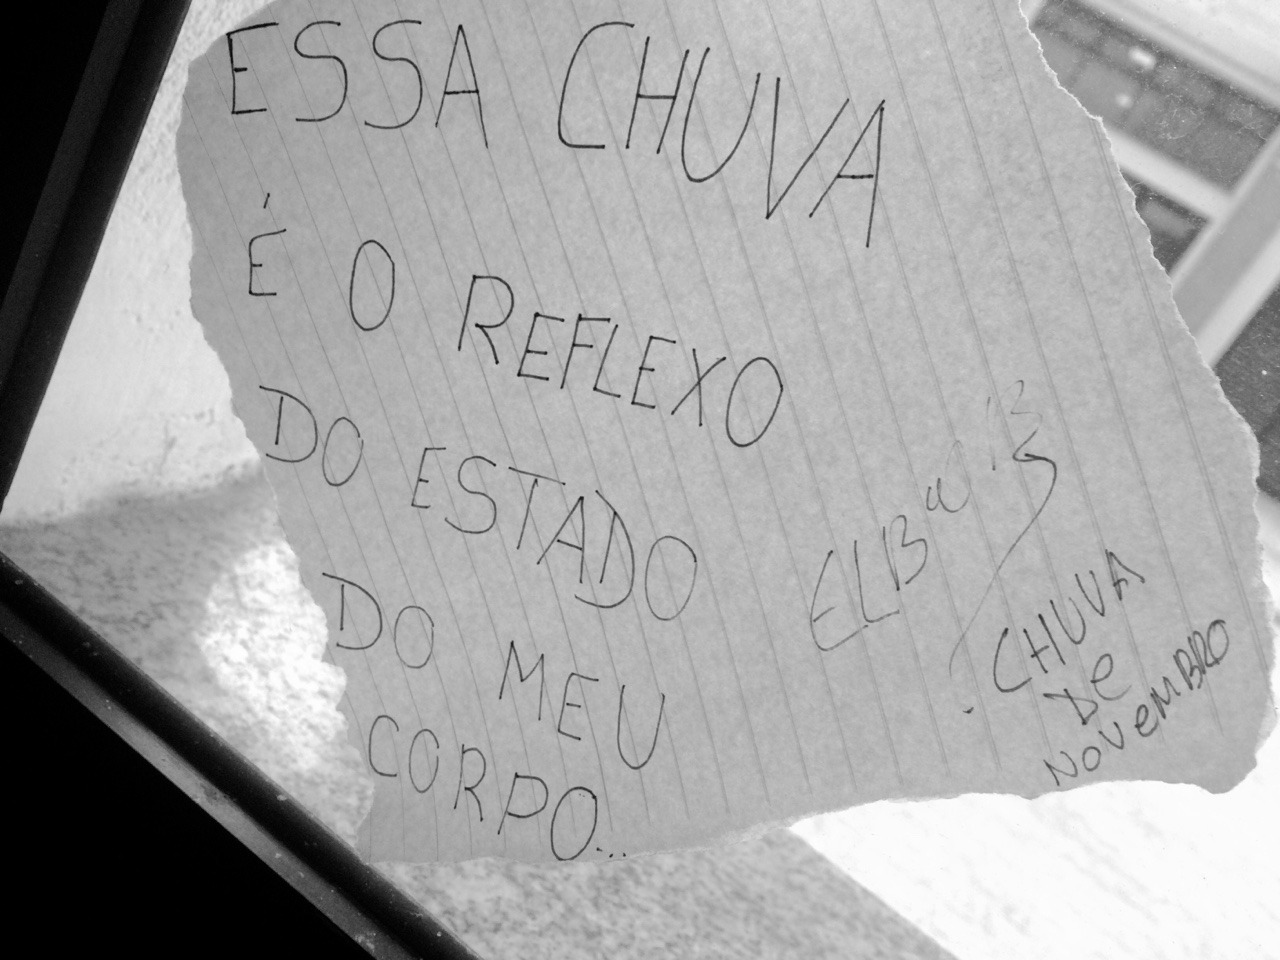 ESSA CHUVA
É O REFLEXO
DO ESTADO
DO MEU
CORPO...
CHUVA
De
NOVeMBRO